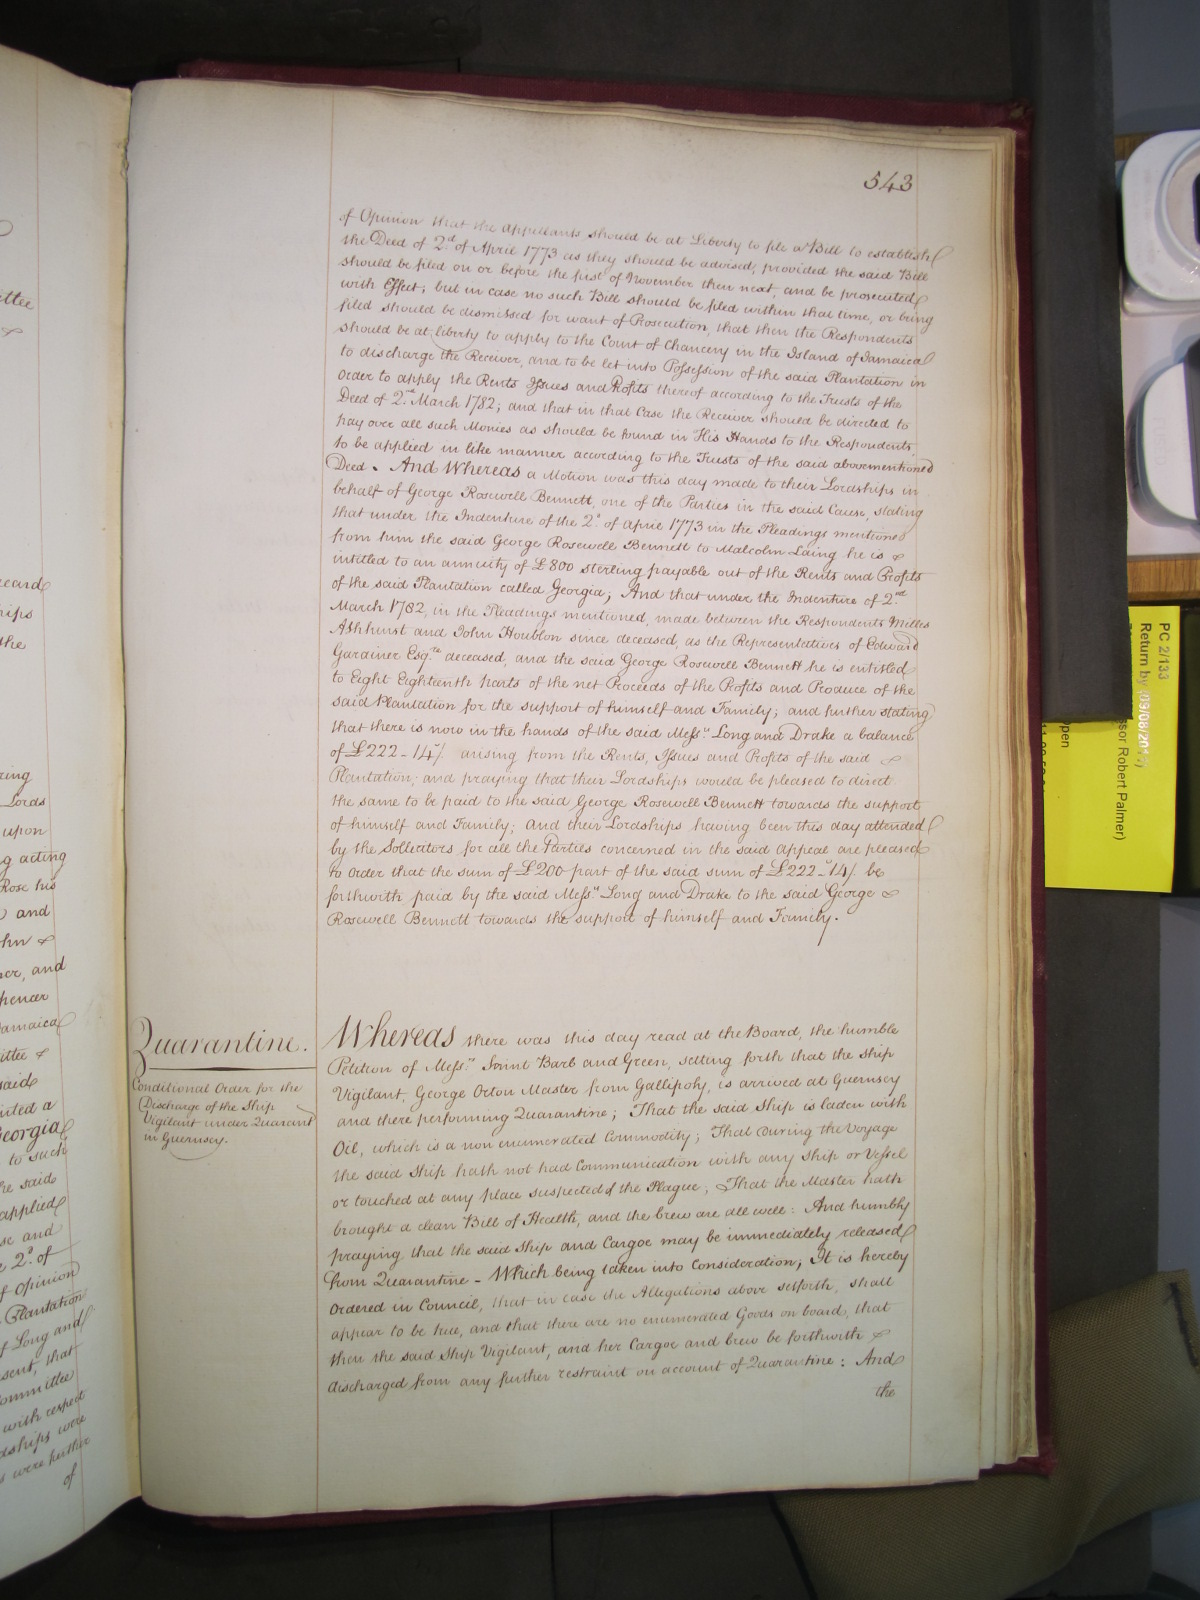 543
of Opinion that the Appellants should be at Liberty to file a Bill to establish
the Deed of 2d. of April 1773 as they should be advised, provided the said Bill
should be filed on or before the first of November then next, and be prosecuted
with Effect; but in case no such Bill should be filed within that time, or being
filed should be dismissed for want of Prosecution, that then the Respondents
should be at liberty to apply to the Court of Chancery in the Island of Jamaica
to discharge the Receiver, and to be let into Possession of the said Plantation in
Order to apply the Rents Issues and Profits thereof according to the Trusts of the
Deed of 2nd. March 1782; and that in that Case the Receiver should be directed to
pay over all such Monies as should be found in His Hands to the Respondents
to be applied in like manner according to the Trusts of the said abovementioned
Deed. And Whereas a Motion was this day made to their Lordships in
behalf of George Rosewell Bennett, one of the Parties in the said Cause, stating
that under the Indenture of the 2d. of April 1773 in the Pleadings mentioned
from him the said George Rosewell Bennett to Malcolm Laing he is &
intitled to an annuity of £800 sterling payable out of the Rents and Profits
of the said Plantation called Georgia; And that under the Indenture of 2nd.
March 1782, in the Pleadings mentioned, made between the Respondents Milles
Ashhurst and John Houblon since deceased, as the Representatives of Edward
Gardiner Esqre. deceased, and the said George Rosewell Bennett he is entitled
to Eight Eighteenth parts of the net Proceeds of the Profits and Produce of the
said Plantation for the support of himself and Family; and further stating
that there is now in the hands of the said Messrs. Long and Drake a balance
of £222-14/ arising from the Rents, Issues and Profits of the said &
Plantation; and praying that their Lordships would be pleased to direct
the same to be paid to the said George Rosewell Bennett towards the support
of himself and Family; And their Lordships having been this day attended
by the Sollicitors for all the Parties concerned in the said Appeal are pleased
to Order that the sum of £200 part of the said sum of £222-14/ be
forthwith paid by the said Messrs. Long and Drake to the said George &
Rosewell Bennett towards the support of himself and Family.
Quarantine.
Conditional Order for the
Discharge of the Ship
Vigilant under Quarant
in Guernsey.
Whereas there was this day read at the Board, the humble
Petition of Messrs. Saint Barb and Green, setting forth that the Ship
Vigilant, George Orton Master from Gallipoly, is arrived at Guernsey
and there performing Quarantine; That the said Ship is laden with
Oil, which is a non enumerated Commodity; That During the Voyage
the said Ship hath not had Communication with any Ship or Vessel
or touched at any place suspected of the Plague; That the Master hath
brought a clean Bill of Health, and the Crew are all well: And humbly
praying that the said Ship and Cargoe may be immediately released
from Quarantine - Which being taken into Consideration; It is hereby
Ordered in Council, that in case the Allegations above setforth, shall
appear to be true, and that there are no enumerated Goods on board, that
then the said Ship Vigilant, and her Cargoe and Crew be forthwith &
discharged from any further restraint on account of Quarantine: And
the
ittee
&
ships
the
Lords
upon
acting
Rose his
and
John &
and
Spencer
Jamaica
&
said
a
Georgia
to such
the said
applied
and
2d. of
of Opinion
Plantation
of Long and
that
Committee
with respect
Lordships were
were further
of
PC 2/133
Return by (09/08/2017)
ssor Robert Palmer)
open